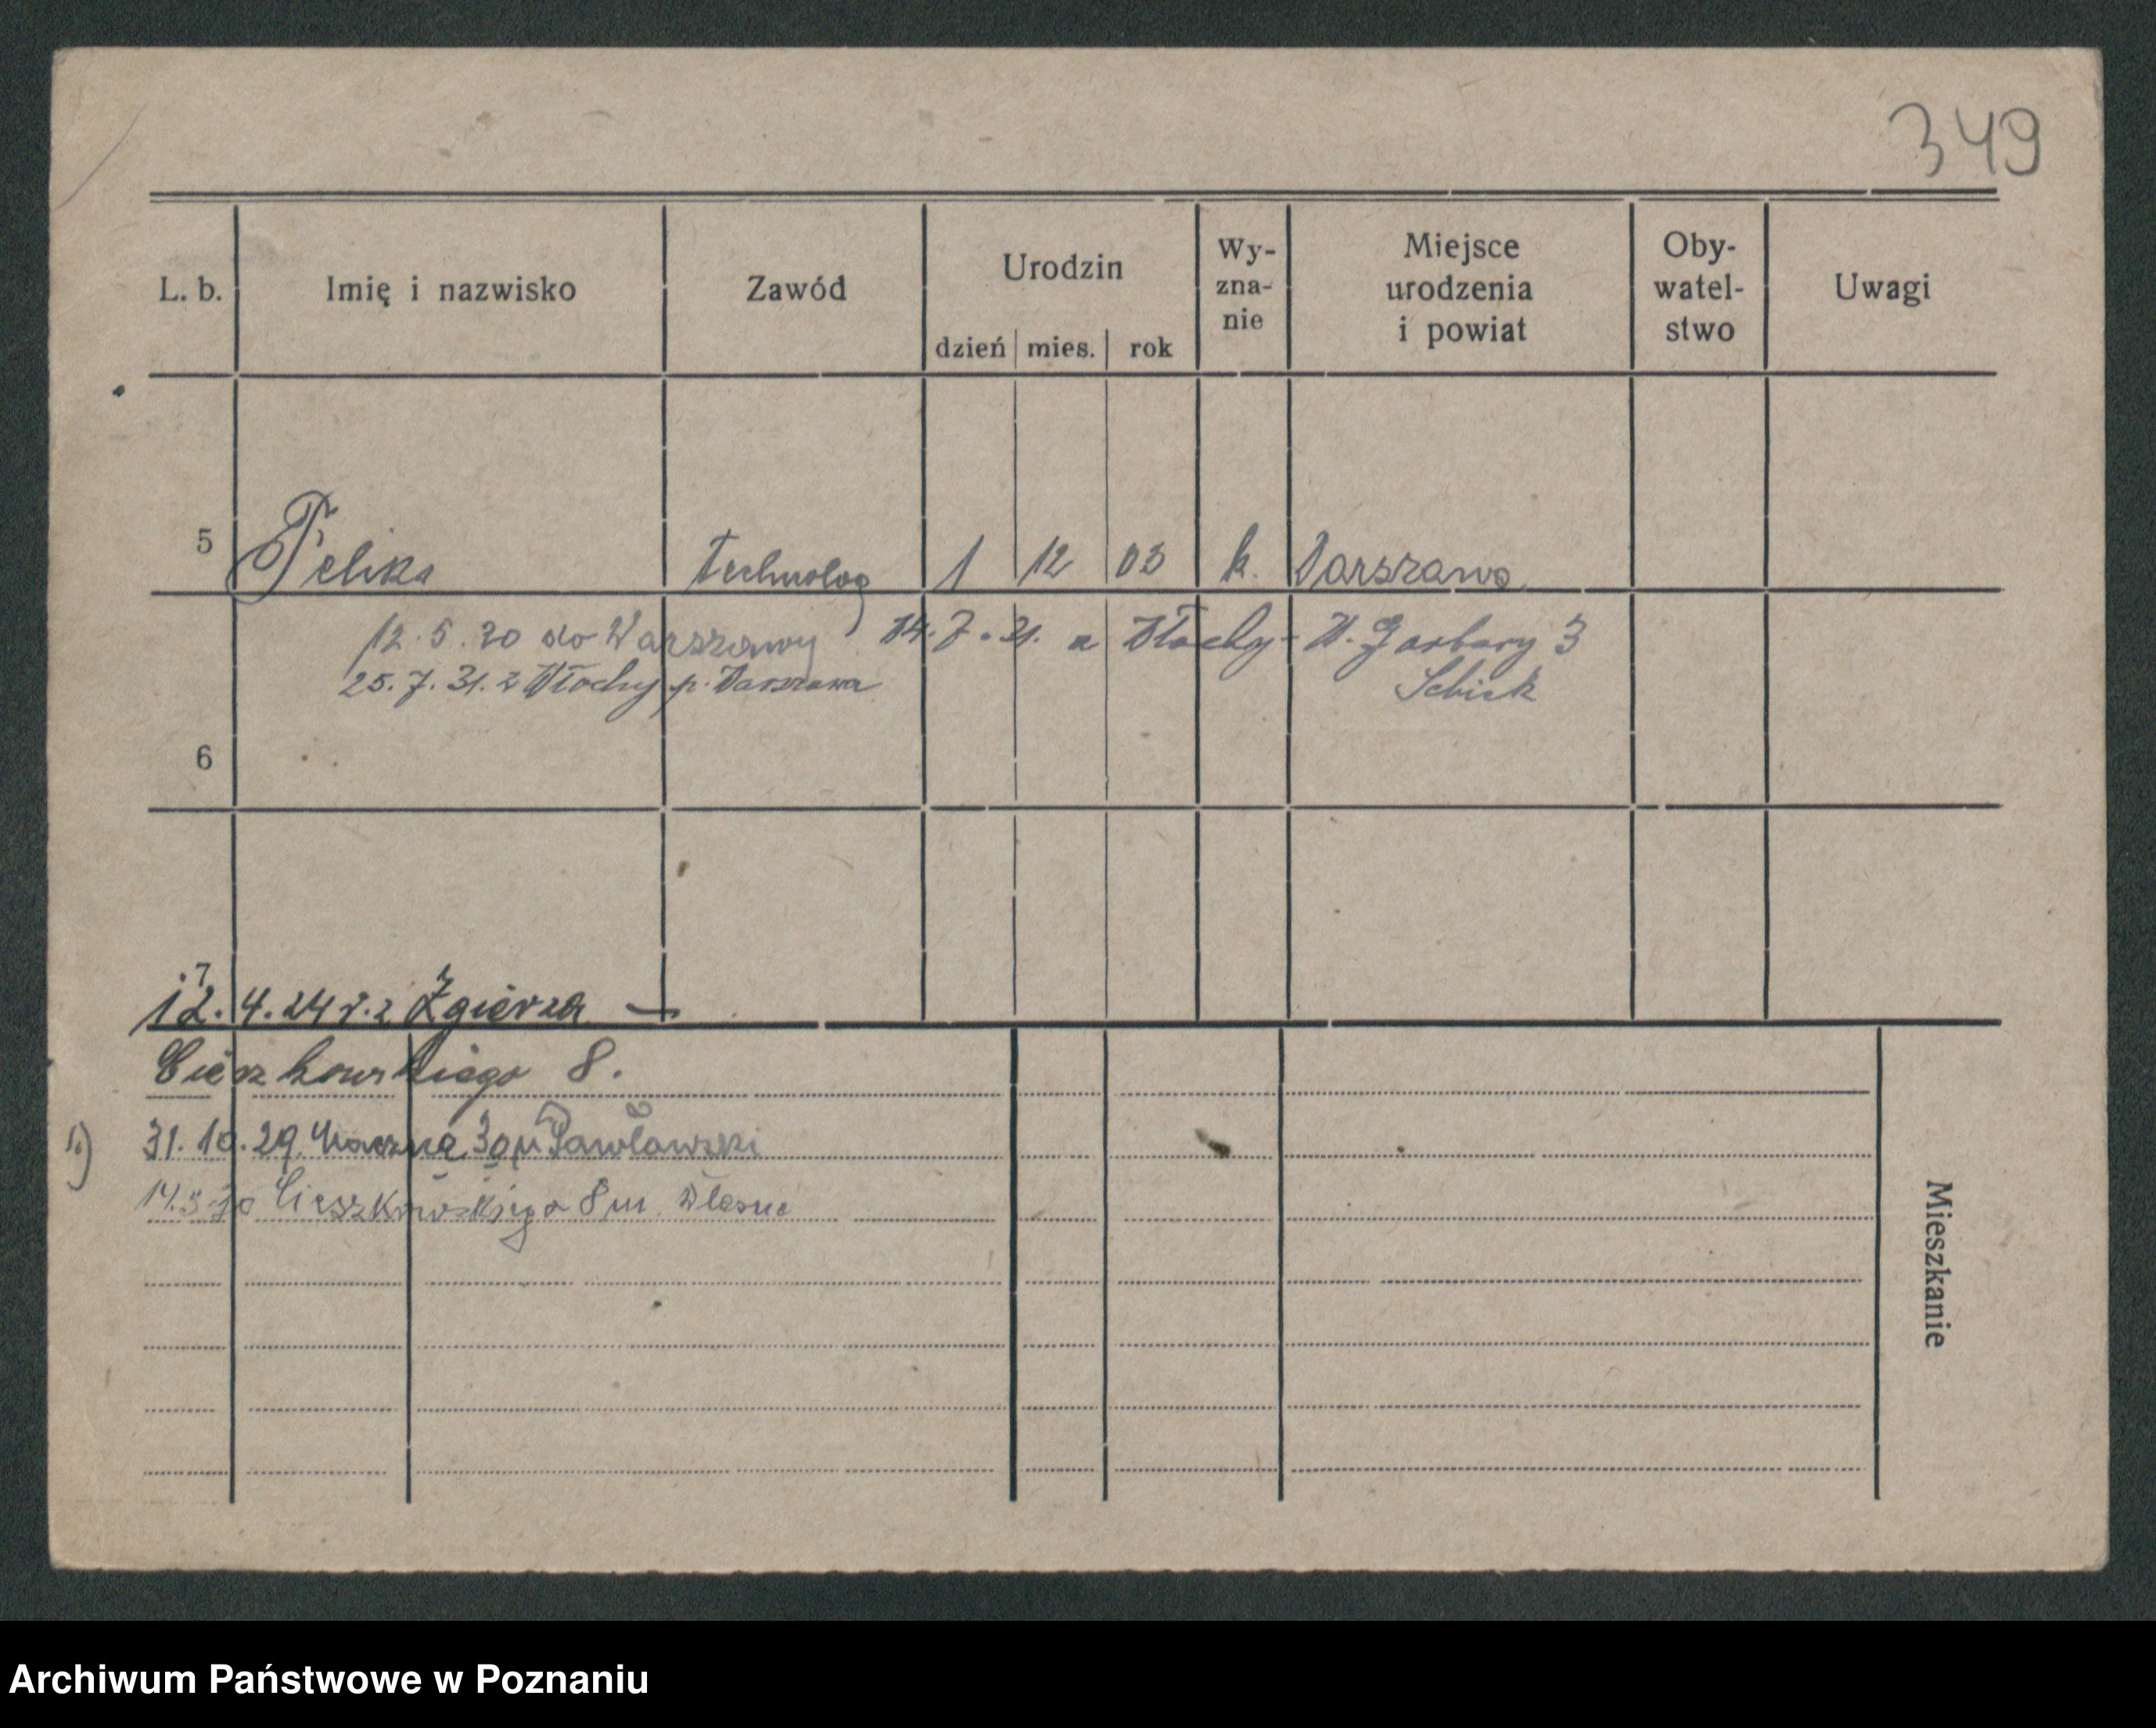 349
L. b. Imię i nazwisko Zawód Urodzin dzień mies. rok Wy- zna- nie Miejsce urodzenia i powiat Oby- watel- stwo Uwagi
5 Felika Technolog 1 12 03 k. Warszawa
12.5.30 do Warszawy 14.7.31. a Włochy- W. Garbary 3
25.7.31. z Włochy p. Warszawa Schick
6
17
12.4.24 r. z Zgierza —
Cieszkowskiego 8.
31.10.29. 30 m Pawlawski
14.5 30 Cieszkowskiego 8 m. Własne
Mieszkanie
Archiwum Państwowe w Poznaniu